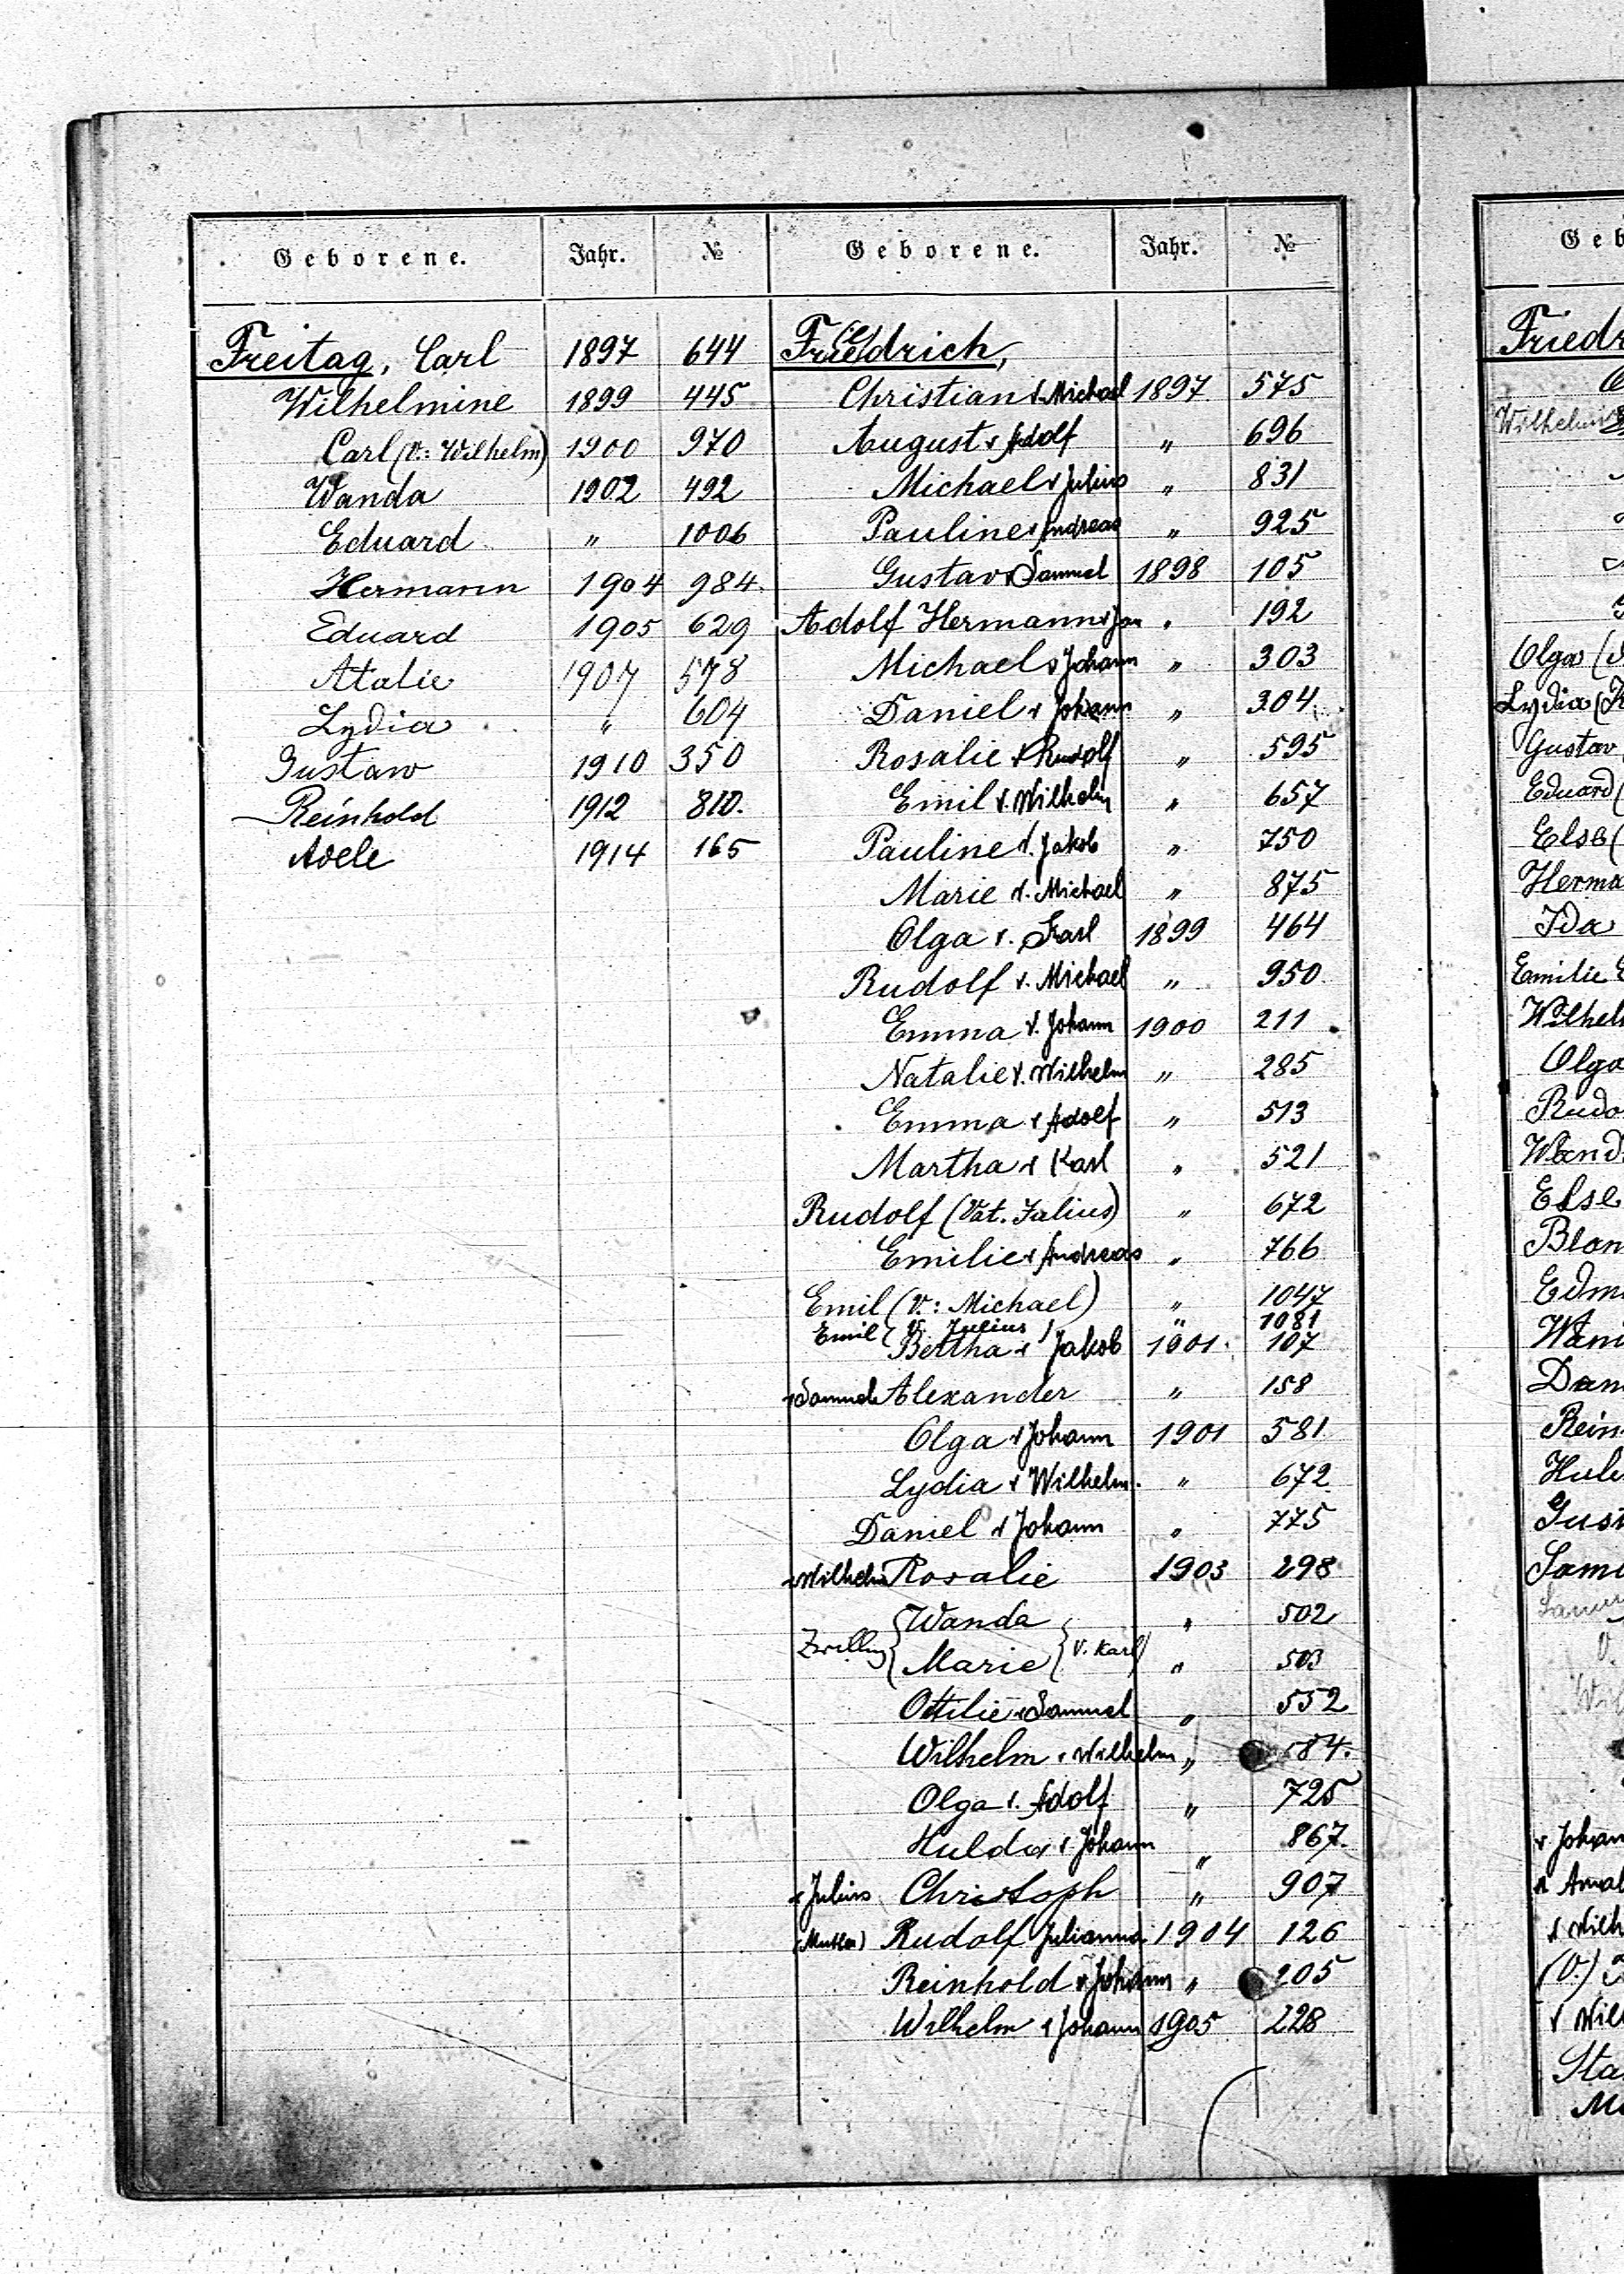 Geborene. Jahr. №
Freitag, Carl 1897 644
Wilhelmine 1899 445
Carl (V: Wilhelm) 1900 970
Wanda 1902 492
Eduard " 1006
Hermann 1904 984.
Eduard 1905 629
Atalie 1907 578
Lydia " 604
Gustaw 1910 350
Reinhold 1912 810.
Adele 1914 165
Geborene. Jahr. №
Friedrich,
Christian v. Michael 1897 575
August v Adolf " 696
Michael v Julius " 831
Pauline v Andreas " 925
Gustav v Samuel 1898 105
Adolf Hermann v Jan " 192
Michael v Johann " 303
Daniel v Johann " 304
Rosalie v Rudolf " 595
Emil v. Wilhelm " 657
Pauline v. Jakob " 750
Marie v. Michael " 875
Olga v. Karl 1899 464
Rudolf v. Michael " 950
Emma v. Johann 1900 211
Natalie v. Wilhelm " 285
Emma v Adolf " 513
Martha v Karl " 521
Rudolf (Vat. Julius) " 672
Emilie v Andreas " 766
Emil (V.: Michael) " 1047
Emil (V. Julius) " 1081
Bertha v Jakob 1901 107
v Samuel Alexander " 158
Olga v Johann 1901 581
Lydia v Wilhelm. " 672
Daniel v Johann " 775
v Wilhelm Rosalie 1903 298
Wanda " 502
Zwilling { Marie } V. Karl " 503
Ottilie v Samuel " 552
Wilhelm v Wilhelm " 84.
Olga v. Adolf " 725
Hulda v Johann " 867.
v Julius Christoph " 907
(Mutter) Rudolf Julianna 1904 126
Reinhold v Johann " 205
Wilhelm v Johann 1905 228
Geb
Friedr
Wilhelm
Olga (
Lydia (K
Gustav
Eduard (
Else (
Herma
Ida
Emilie E
Wilhel
Olga
Rudo
Wand
Else
Blan
Edm
Wan
Dan
Rein
Huld
Gust
Samu
Samu
V.
Wil
v Johan
v Amal
v Wilh
(V.)
v Wil
Sta
Ma